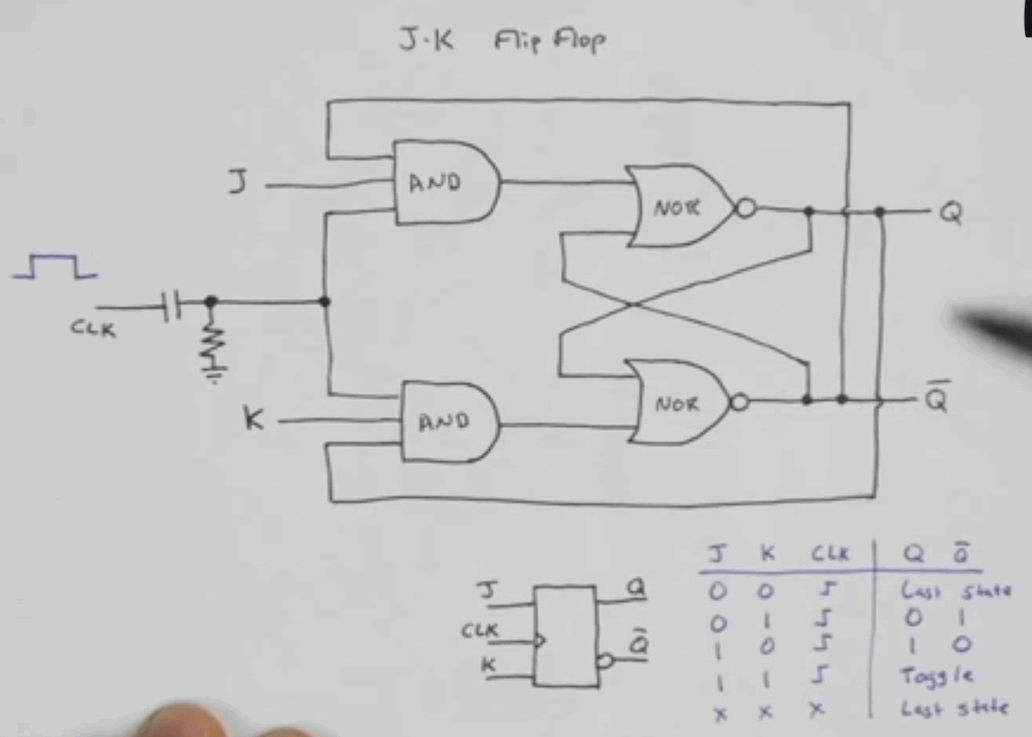 J-K Flip Flop
J
AND
NOR
Q
CLK
K
AND
NOR
Q̅
J
Q
CLK
Q̅
K
J K CLK Q Q̅
0 0 ⎍ Last state
0 1 ⎍ 0 1
1 0 ⎍ 1 0
1 1 ⎍ Toggle
x x x Last state